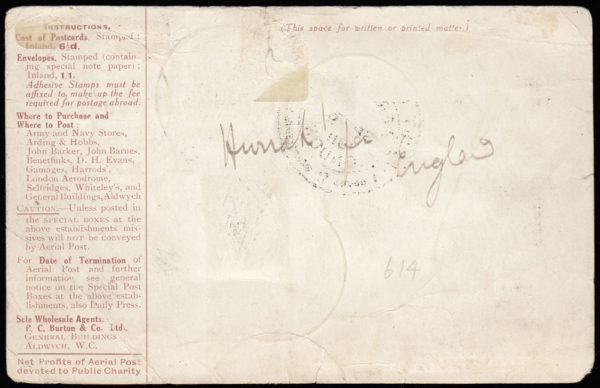 INSTRUCTIONS.
Cost of Postcards, Stamped:
Inland, 6½d.
Envelopes, Stamped (contain-
ing special note paper):
Inland, 1/1.
Adhesive Stamps must be
affixed to make up the fee
required for postage abroad.
Where to Purchase and
Where to Post:
Army and Navy Stores,
Arding & Hobbs,
John Barker, John Barnes,
Benetfinks, D. H. Evans,
Gamages, Harrods',
London Aerodrome,
Selfridges, Whiteley's, and
General Buildings, Aldwych
CAUTION.—Unless posted in
the SPECIAL BOXES at the
above establishments mis-
sives will NOT be conveyed
by Aerial Post.
For Date of Termination of
Aerial Post and further
information see general
notice on the Special Post
Boxes at the above estab-
lishments, also Daily Press.
Sole Wholesale Agents:
P. C. Burton & Co. Ltd.,
GENERAL BUILDINGS
ALDWYCH, W.C.
Net Profits of Aerial Post
devoted to Public Charity
(This space for written or printed matter.)
Hurrah for
England
614